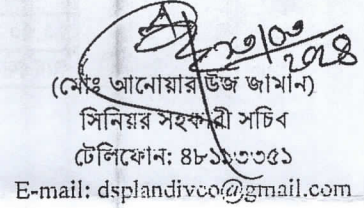 ২৩/০৩/২০২৪
(মোঃ আনোয়ার উজ জামান)
সিনিয়র সহকারী সচিব
টেলিফোন: ৪৮১১৩৩৫১
E-mail: dsplandivcoo@gmail.com